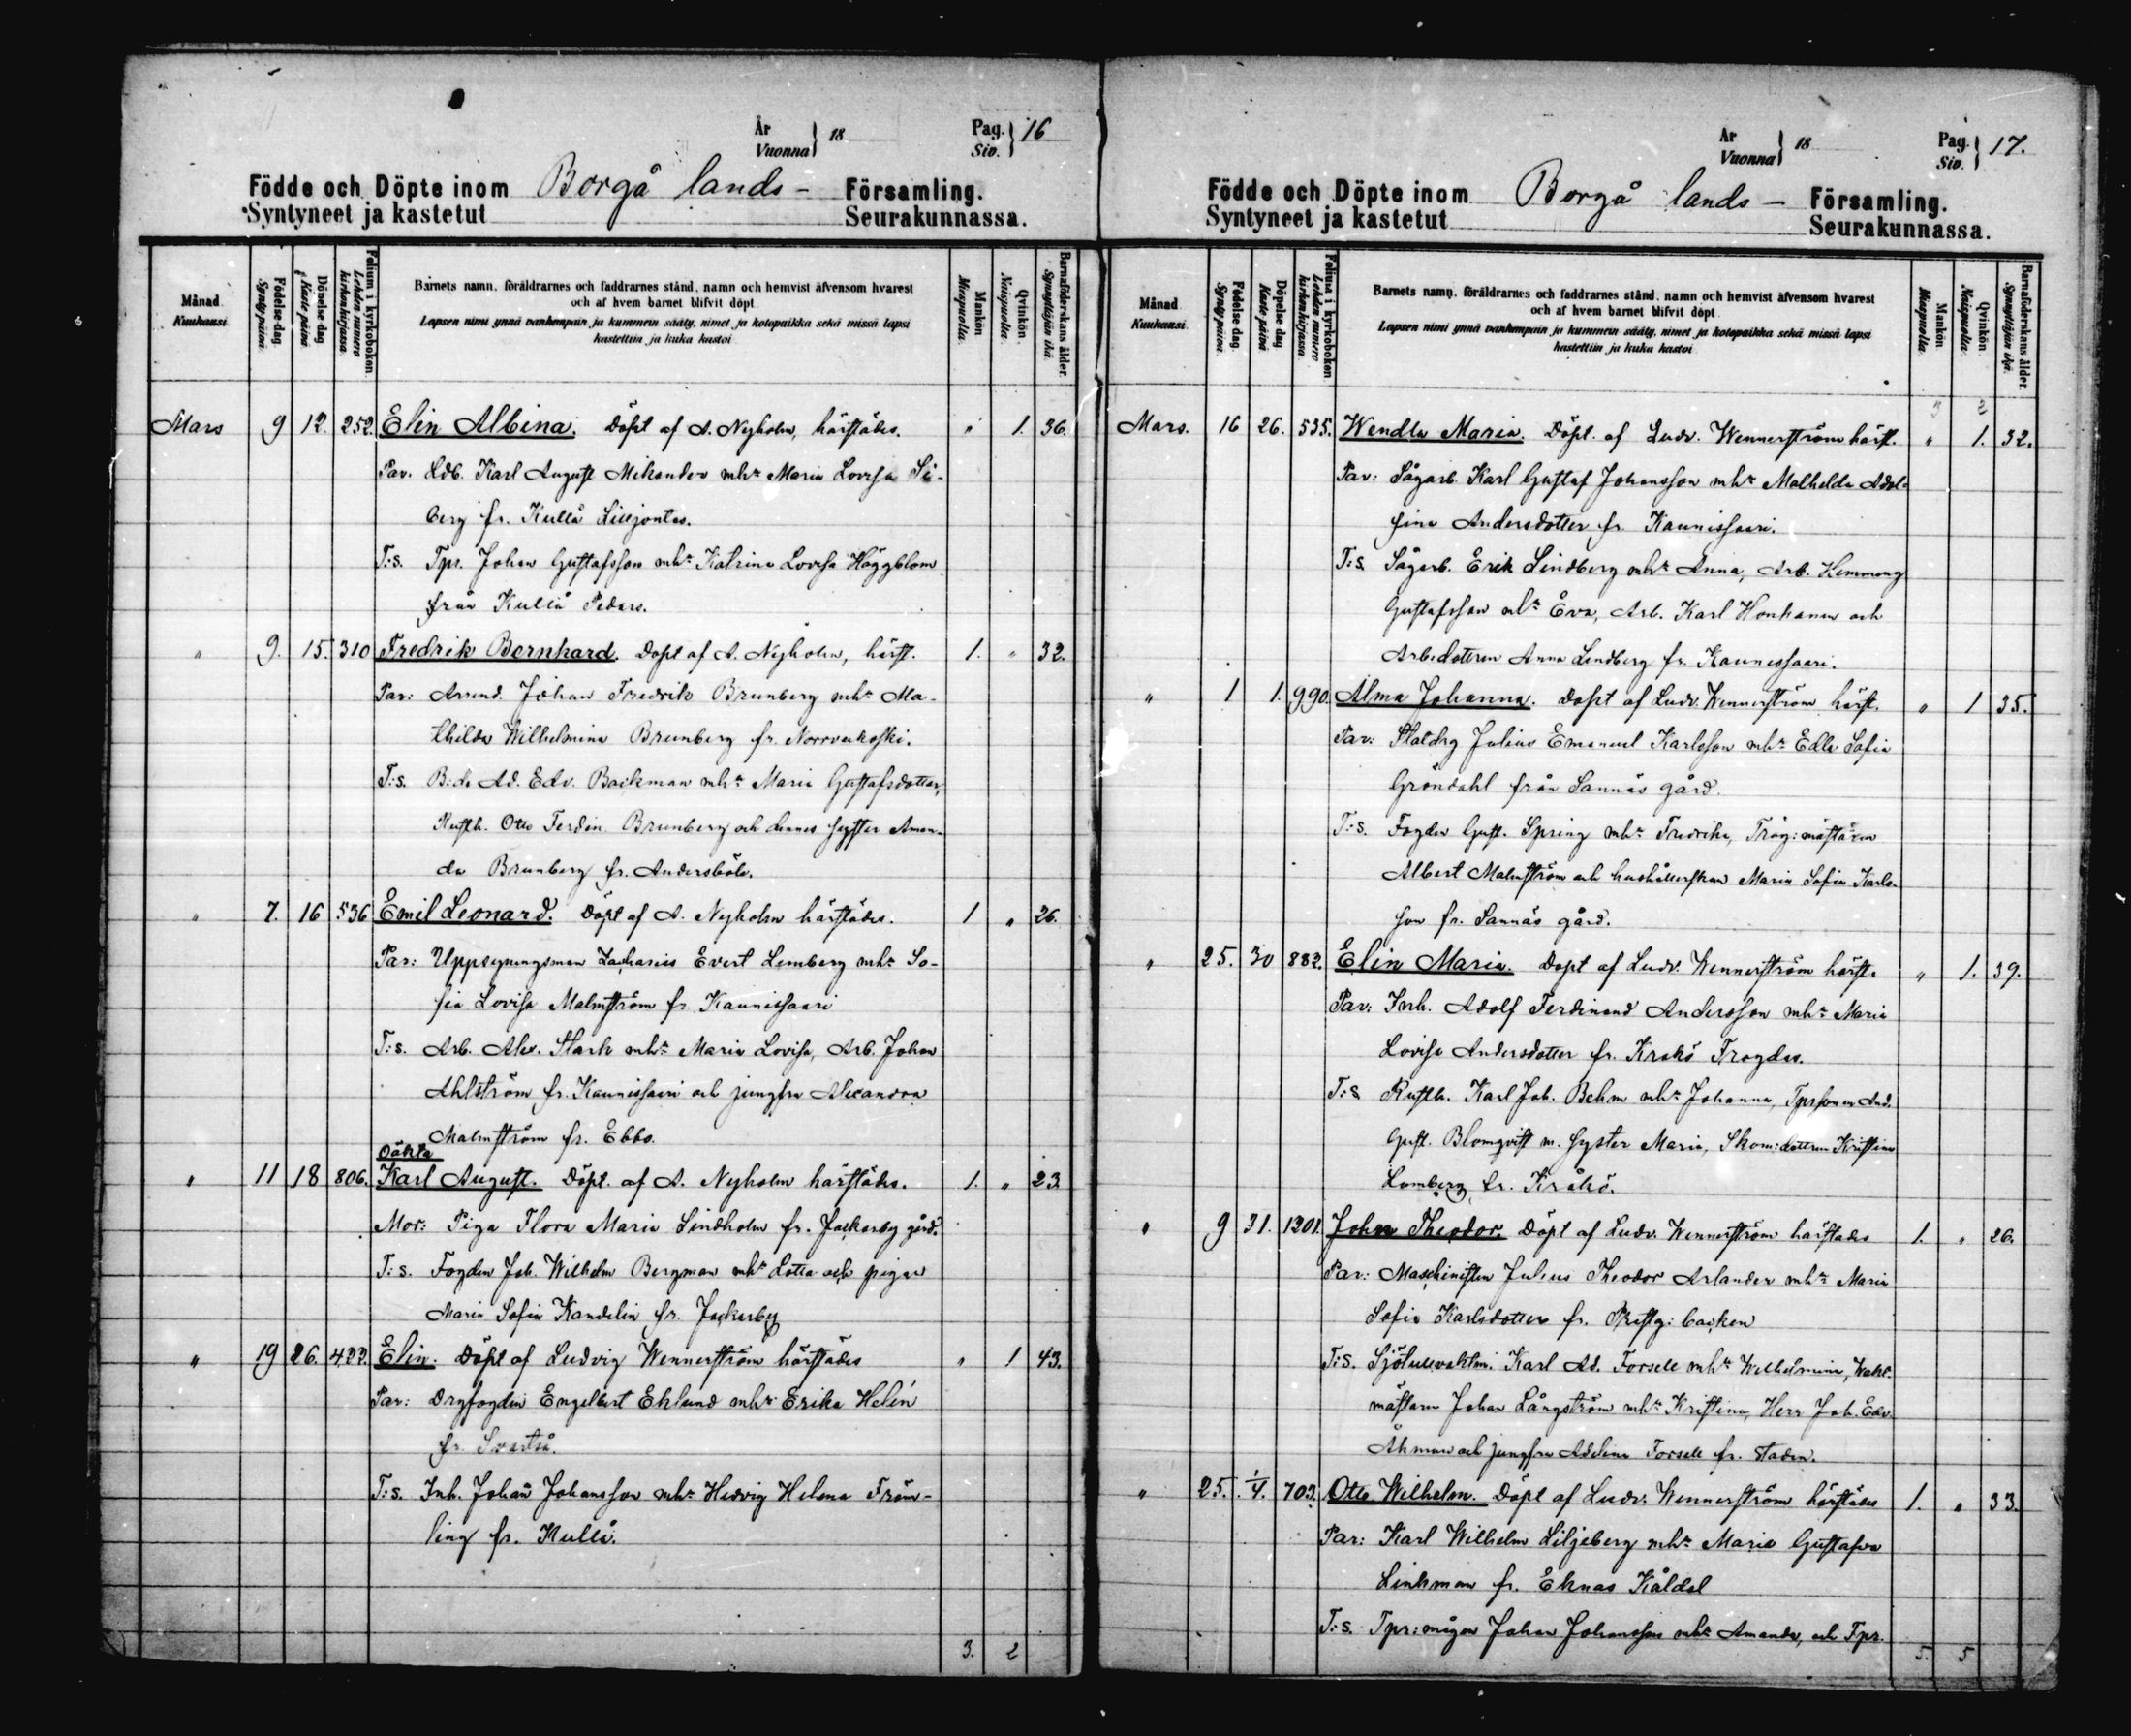 År
Vuonna } 18
Pag.
Siv. } 16
Födde och Döpte inom Borgå lands- Församling.
Syntyneet ja kastetut Seurakunnassa.
Månad
Kuukausi
Födelse dag
Synty päivä
Döpelse dag
Kaste päivä
Folium i kyrkoboken
Lehden numero kirkonkirjassa
Barnets namn, föräldrarnes och faddrarnes stånd, namn och hemvist äfvensom hvarest
och af hvem barnet blifvit döpt
Lapsen nimi ynnä vanhempain ja kummein sääty, nimet ja kotopaikka sekä missä lapsi
kastettiin ja kuka kastoi
Mankön
Miespuolia
Qvinkön
Naispuolia
Barnaföderskans ålder
Synnyttäjän ikä
Mars 9 12. 252. Elin Albina. Döpt af A. Nyholm, härstädes. " 1. 36.
Par. Ldb. Karl August Mikander mhr Maria Lovisa Si-
berg fr. Kullå Lilljontas.
T:s. Tpr. Johan Gustafsson mhr Katrina Lovisa Häggblom
från Kullå Peders.
" 9. 15. 310 Fredrik Bernhard. Döpt af A. Nyholm, härst. 1. " 32.
Par: Arrend. Johan Fredrik Brunberg mhr Ma-
thilda Wilhelmina Brunberg fr. Norrveckoski.
T:s. B:de Ad. Edv. Backman mhr Maria Gustafsdotter,
Rusth. Otto Ferdin. Brunberg och dennes syster Aman-
da Brunberg fr. Andersböle.
" 7. 16 536 Emil Leonard. Döpt af A. Nyholm härstädes. 1 " 26.
Par: Uppsyningsman Zacharias Evert Lemberg mhr So-
fia Lovisa Malmström fr. Kaunissaari
T:s. Arb. Alex. Stark mhr Maria Lovisa, Arb. Johan
Ahlström fr. Kaunissaari och jungfru Alexandra
Malmström fr. Ebbo.
Oäkta
" 11 18 806. Karl August. Döpt af A. Nyholm härstädes. 1. " 23.
Mor: Piga Flora Maria Lindholm fr. Jackarby gård.
T:s. Fogden Joh. Wilhelm Bergman mhr Lotta och pigan
Maria Sofia Kandelin fr. Jackarby
" 19 26. 422. Elin. Döpt af Ludvig Wennerström härstädes " 1 43.
Par: Drgfogden Engelbert Eklund mhr Erika Helén
fr. Svartså.
T:s. Inh. Johan Johansson mhr Hedvig Helena Fröm-
ling fr. Kullå.
3. 2
År
Vuonna } 18
Pag.
Siv. } 17.
Födde och Döpte inom Borgå lands- Församling.
Syntyneet ja kastetut Seurakunnassa.
Månad
Kuukausi
Födelse dag
Synty päivä
Döpelse dag
Kaste päivä
Folium i kyrkoboken
Lehden numero kirkonkirjassa
Barnets namn, föräldrarnes och faddrarnes stånd, namn och hemvist äfvensom hvarest
och af hvem barnet blifvit döpt
Lapsen nimi ynnä vanhempain ja kummein sääty, nimet ja kotopaikka sekä missä lapsi
kastettiin ja kuka kastoi
Mankön
Miespuolia
Qvinkön
Naispuolia
Barnaföderskans ålder
Synnyttäjän ikä
3 2
Mars. 16 26. 535. Wendla Maria. Döpt. af Ludv. Wennerström härst. " 1. 32.
Par: Sågarb. Karl Gustaf Johansson mhr Mathilda Adol-
fina Andersdotter fr. Kaunissaari.
T:s. Sågarb. Erik Lindberg mhr Anna, Arb. Hemming
Gustafsson mhr Eva, Arb. Karl Honkanen och
Arb:dottren Anna Lindberg fr. Kaunissaari.
" 1 1. 990. Alma Johanna. Döpt af Ludv. Wennerström härst. " 1 35.
Par: Statdrg Julius Emanuel Karlsson mhr Edla Sofia
Gröndahl från Sannäs gård.
T:s. Fogden Gust. Spring mhr Fredrika, Träg:mästaren
Albert Malmström och hushållerskan Maria Sofia Karls-
son fr. Sannäs gård.
" 25. 30 882. Elin Maria. Döpt af Ludv. Wennerström härst. " 1. 39.
Par: Inh. Adolf Ferdinand Andersson mhr Maria
Lovisa Andersdotter fr. Kråkö Frogdas.
T:s Rusth. Karl Joh. Behm mhr Johanna, Tprsonen And.
Gust. Blomqvist m. syster Maria, Skom:dottren Kristina
Lomberg fr. Kråkö.
" 9 31. 1301. John Theodor. Döpt af Ludv. Wennerström härstädes 1. " 26.
Par: Maschinisten Julius Theodor Arlander mhr Maria
Sofia Karlsdotter fr. Prestg:backen
T:s. Sjötullvaktm. Karl Ad. Forsell mhr Wilhelmina, Wakt-
mästaren Johan Långström mhr Kristina, Herr Joh. Edv.
Åhman och jungfru Adelina Forsell fr. staden.
" 25. 1/4. 703. Otto Wilhelm. Döpt af Ludv. Wennerström härstädes 1. " 33.
Par: Karl Wilhelm Liljeberg mhr Maria Gustafva
Linkman fr. Eknäs Kåldal
T:s. Tpr:mågen Johan Johansson mhr Amanda, och Tpr.
5. 5